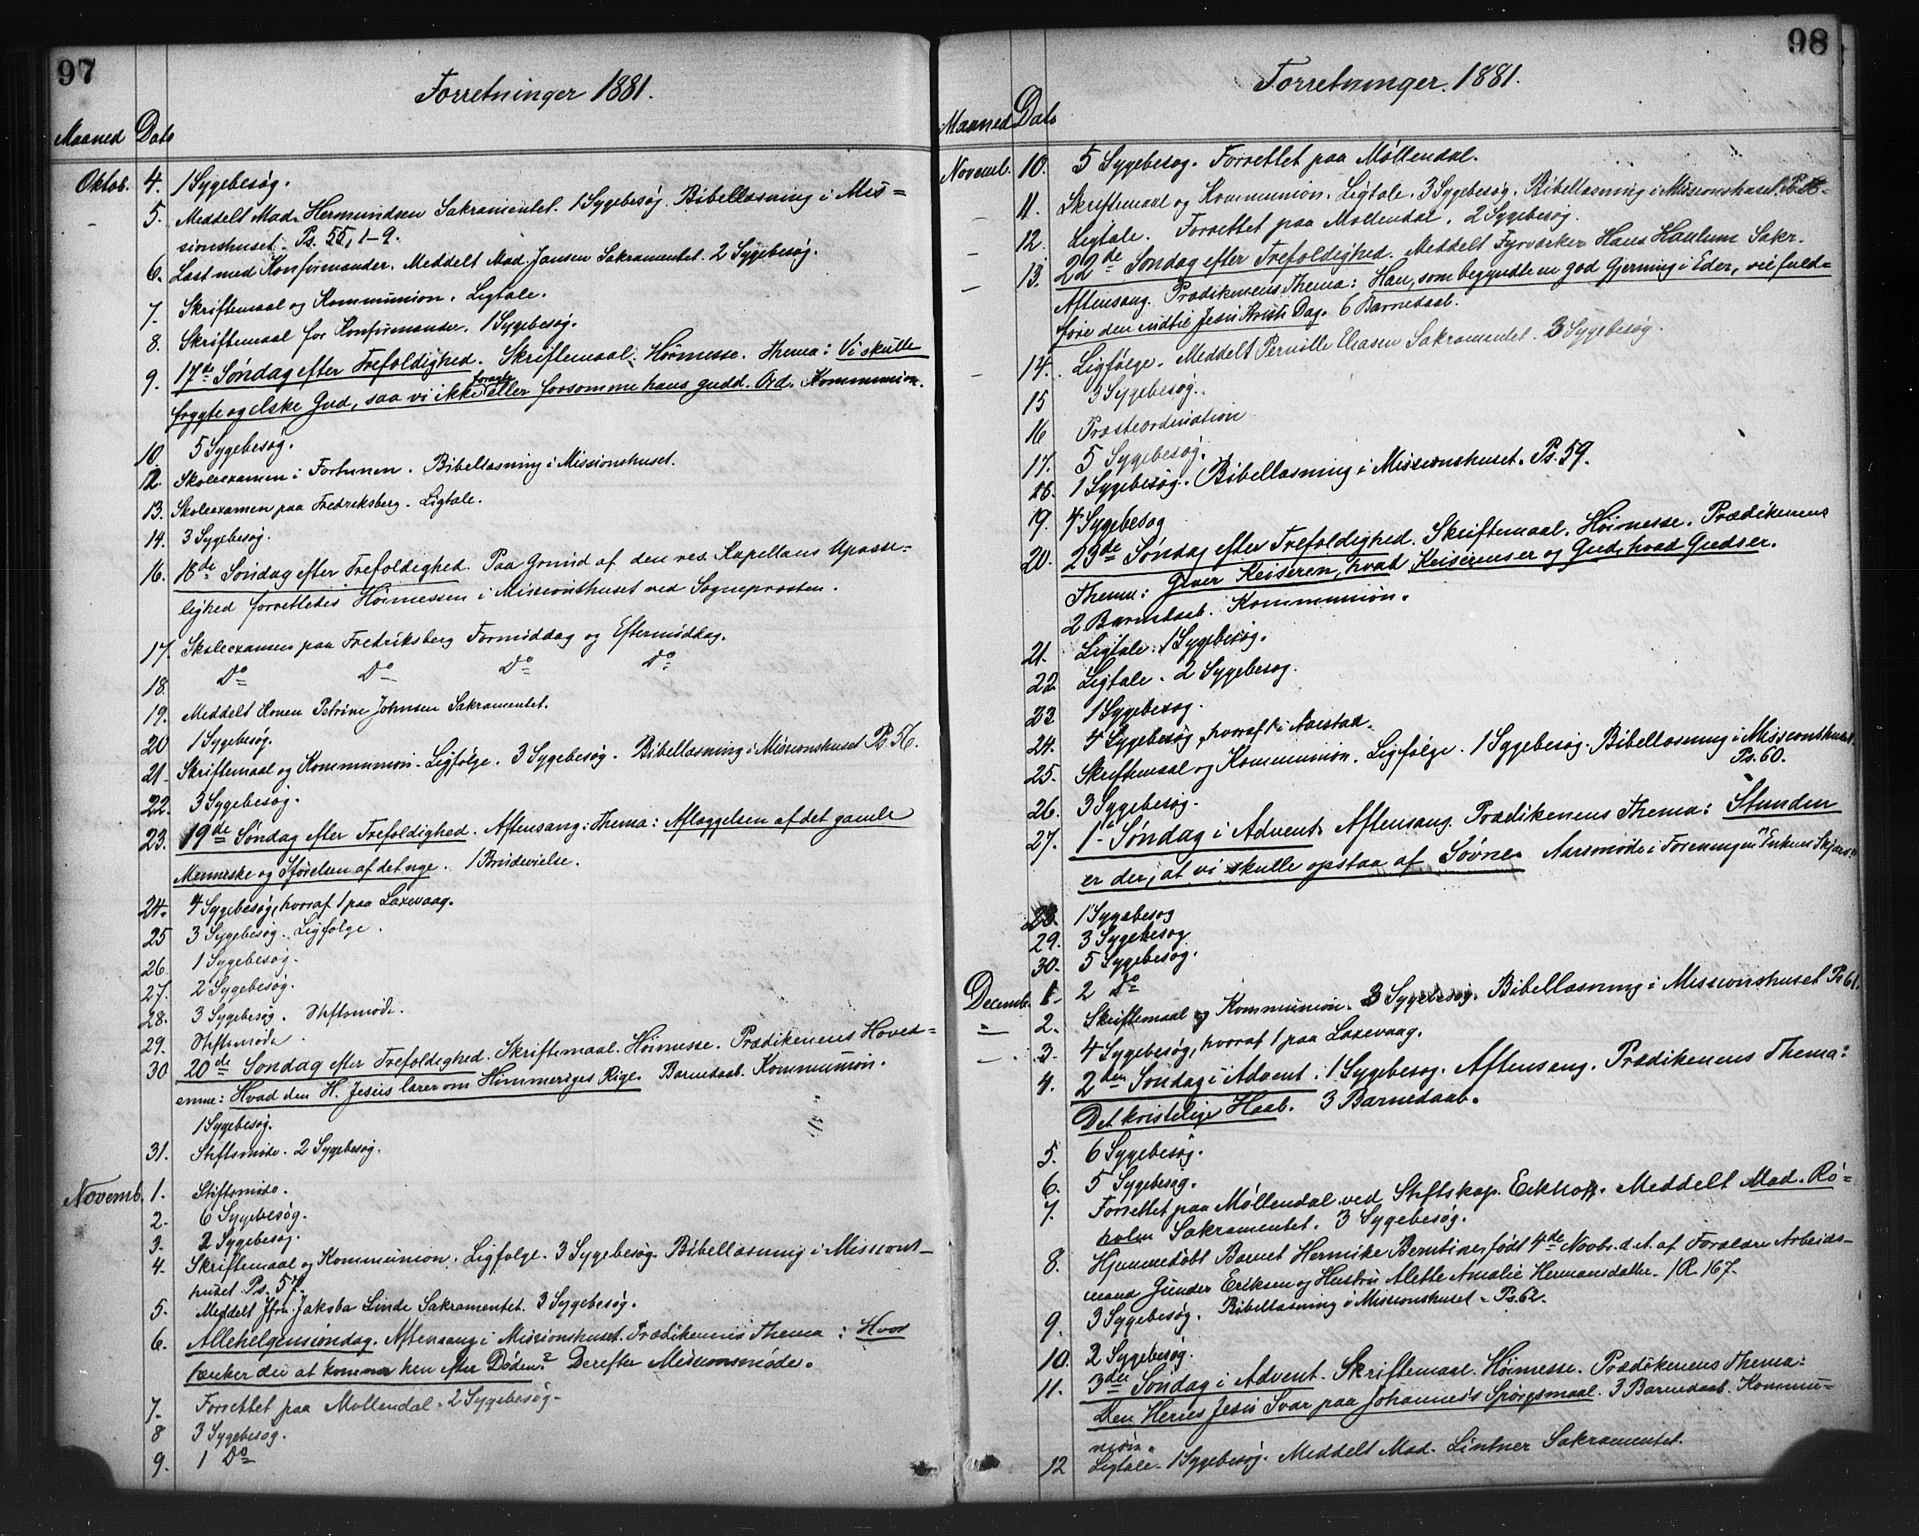 97
Forretninger 1881.
Maaned Dato
Oktob. 4. 1 Sygebesøg.
5. Meddelt Mad. Hermundsen Sakramentet. 1 Sygebesøg. Bibellæsning i Mis=
sionshuset. Ps. 55, 1-9.
6. Læst med Konfirmander. Meddelt Mad. Jansen Sakramentet. 2 Sygebesøg.
7. Skriftemaal og Kommunion. Ligtale.
8. Skriftemaal for Konfirmander. 1 Sygebesøg.
9. 17de Søndag efter Trefoldighed. Skriftemaal. Höimesse. Thema: Vi skulle
frygte og elske Gud, saa vi ikke foragte eller forsømme hans gudd. Ord. Kommunion.
10. 5 Sygebesøg.
12. Skoleexamen i Fortunen. Bibellæsning i Missionshuset.
13. Skoleexamen paa Fredriksberg. Ligtale.
14. 3 Sygebesøg.
16. 18de Søndag efter Trefoldighed. Paa Grund af den res. Kapellans Upasse=
lighed forrettedes Höimessen i Missionshuset ved Sognepræsten.
17. Skoleexamen paa Fredriksberg Formiddag og Eftermiddag.
18. Do Do Do Do
19. Meddelt Konen Petrine Johnsen Sakramentet.
20 1 Sygebesøg.
21. Skriftemaal og Kommunion. Ligfølge. 3 Sygebesøg. Bibellæsning i Missionshuset Ps. 56.
22. 3 Sygebesøg.
23. 19de Søndag efter Trefoldighed. Aftensang: Thema: Aflæggelsen af det gamle
Menneske og Iførelsen af det nye. 1 Brudevielse.
24. 4 Sygebesøg, hvoraf 1 paa Laxevaag.
25 3 Sygebesøg. Ligfølge.
26. 1 Sygebesøg.
27. 2 Sygebesøg.
28. 3 Sygebesøg. Stiftsmøde.
29. Stiftsmøde.
30 20de Søndag efter Trefoldighed. Skriftemaal. Höimesse. Prædikenens Hoved=
emne: Hvad den H. Jesus lærer om Himmeriges Rige. Barnedaab. Kommunion.
1 Sygebesøg.
31. Stiftsmøde. 2 Sygebesøg.
Novemb. 1. Stiftsmøde.
2. 6 Sygebesøg.
3. 2 Sygebesøg.
4. Skriftemaal og Kommunion. Ligfølge. 3 Sygebesøg. Bibellæsning i Missions-
huset Ps. 57.
5. Meddelt Jfru Jakoba Linde Sakramentet. 3 Sygebesøg.
6. Allehelgensøndag. Aftensang i Missionshuset. Prædikenens Thema: Hvor
tænker du at komme hen efter Døden? Derefter Missionsmøde.
7. Forrettet paa Møllendal. 2 Sygebesøg.
8 3 Sygebesøg.
9. 1 Do
98
Forretninger. 1881.
Maaned Dato
Novemb. 10. 5 Sygebesøg. Forrettet paa Møllendal.
11. Skriftemaal og Kommunion. Ligtale. 3 Sygebesøg. Bibellæsning i Missionshuset Ps. 58.
12. Ligtale. Forrettet paa Møllendal. 2 Sygebesøg.
13. 22de Søndag efter Trefoldighed. Meddelt Fyrværker Hans Haulum Sakr.
Aftensang. Prædikenens Thema: Han, som begyndte en god Gjerning i Eder, vil fuld=
føre den indtil Jesu Kristi Dag. 6 Barnedaab.
14. Ligfølge. Meddelt Pernille Eliasen Sakramentet. 3 Sygebesøg.
15 3 Sygebesøg.
16 Præsteordination
17. 5 Sygebesøg.
18. 1 Sygebesøg. Bibellæsning i Missionshuset. Ps. 59.
19. 4 Sygebesøg
20. 23de Søndag efter Trefoldighed. Skriftemaal. Höimesse. Prædikenens
Thema: Giver Keiseren, hvad Keiserens er og Gud, hvad Guds er.
2 Barnedaab. Kommunion.
21. Ligtale. 1 Sygebesøg.
22. Ligtale. 2 Sygebesøg.
23 1 Sygebesøg.
24. 4 Sygebesøg, hvoraf 1 i Aarstad.
25. Skriftemaal og Kommunion. Ligfølge. 1 Sygebesøg. Bibellæsning i Missionshuset.
Ps. 60.
26. 3 Sygebesøg.
27. 1 Søndag i Advent. Aftensang. Prædikenens Thema: Stunden
er der, at vi skulle opstaa af Søvne. Aarsmøde i Foreningen "Enkens Skjærv"
28. 1 Sygebesøg
29. 3 Sygebesøg
30. 5 Sygebesøg.
Decemb. 1. 2 Do
2. Skriftemaal og Kommunion. 3 Sygebesøg. Bibellæsning i Missionshuset Ps 61.
3. 4 Sygebesøg, hvoraf 1 paa Laxevaag.
4. 2den Søndag i Advent. 1 Sygebesøg. Aftensang. Prædikenens Thema:
Det kristelige Haab. 3 Barnedaab.
5. 6 Sygebesøg.
6. 5 Sygebesøg.
7. Forrettet paa Møllendal ved Stiftskap. Eckhoff. Meddelt Mad. Rö=
holm Sakramentet. 3 Sygebesøg.
8. Hjemmedøbt Barnet Hermike Berntine, født 4de Novbr. d. A. af Forældre Arbeids-
mand Gunder Eriksen og Hustru Alette Amalie Hermansdatter. 1 R. 167.
9. 3 Sygebesøg. Bibellæsning i Missionshuset. Ps. 62.
10. 2 Sygebesøg.
11. 3die Søndag i Advent. Skriftemaal. Höimesse. Prædikenens Thema:
Den Herres Jesu Svar paa Johannes's Spørgsmaal. 3 Barnedaab. Kommu=
nion.
12 Ligtale. 1 Sygebesøg. Meddelt Mad. Lintner Sakramentet.